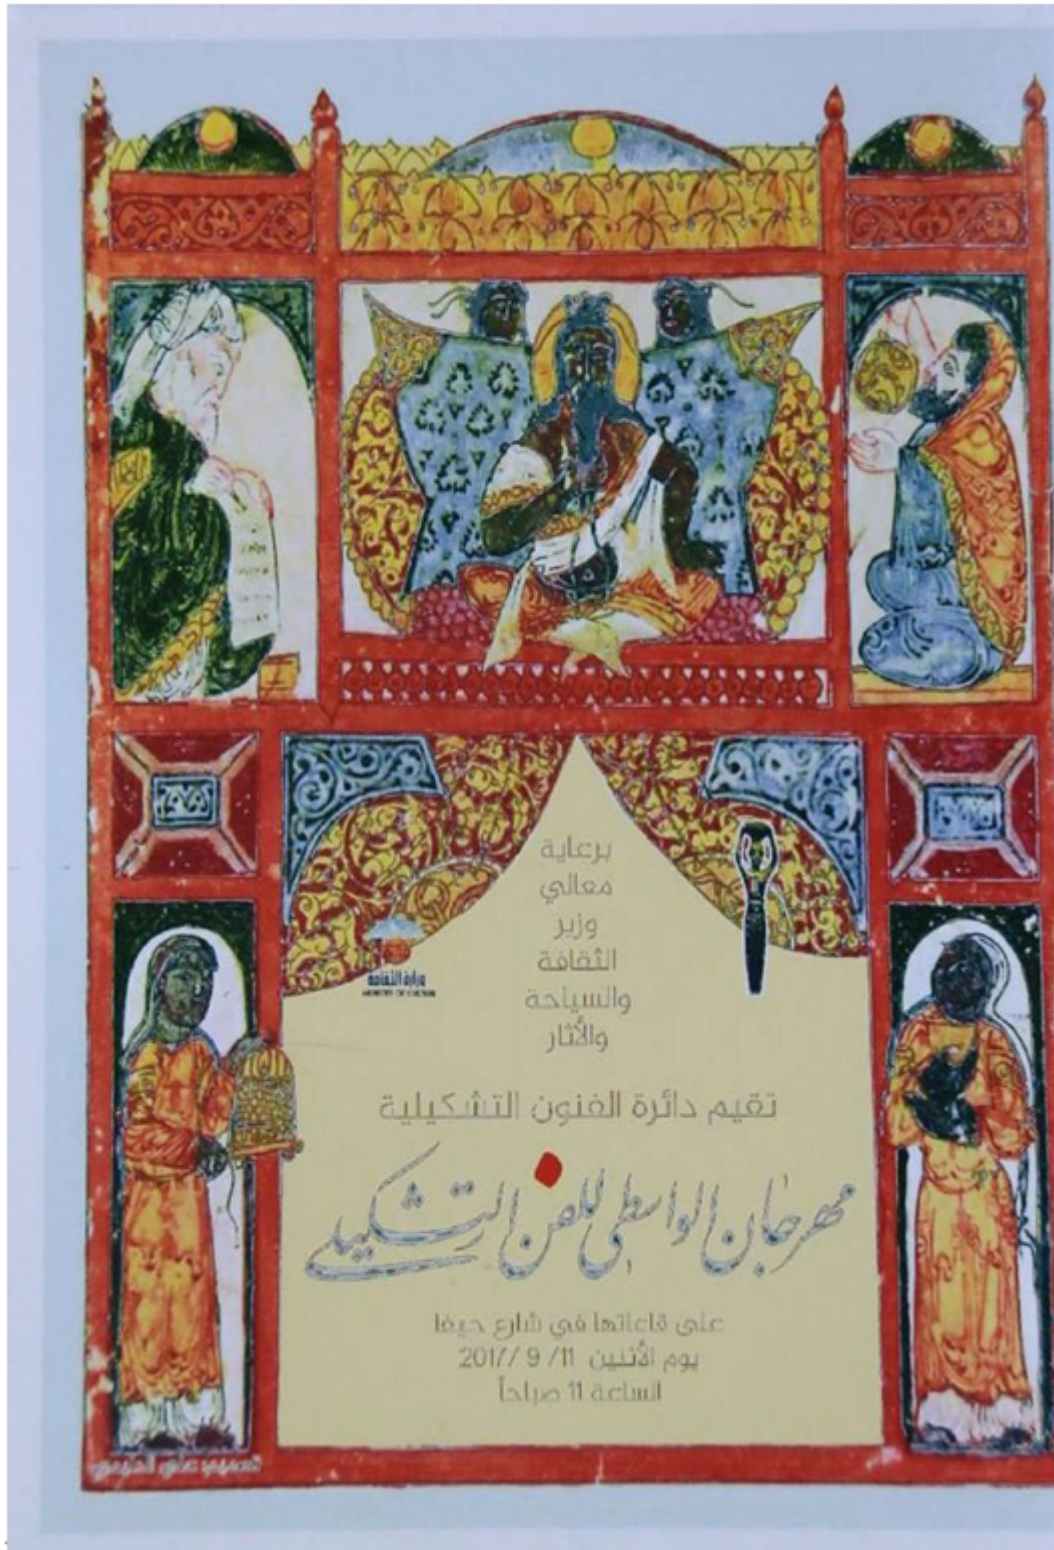 برعاية
معالي
وزير
الثقافة
والسياحة
والأثار
وزارة الثقافة
MINISTRY OF CULTURE
تقيم دائرة الفنون التشكيلية
مهرجان الواسطي للفن التشكيلي
على قاعاتها في شارع حيفا
يوم الأثنين 11/ 9 /2017
الساعة 11 صباحاً